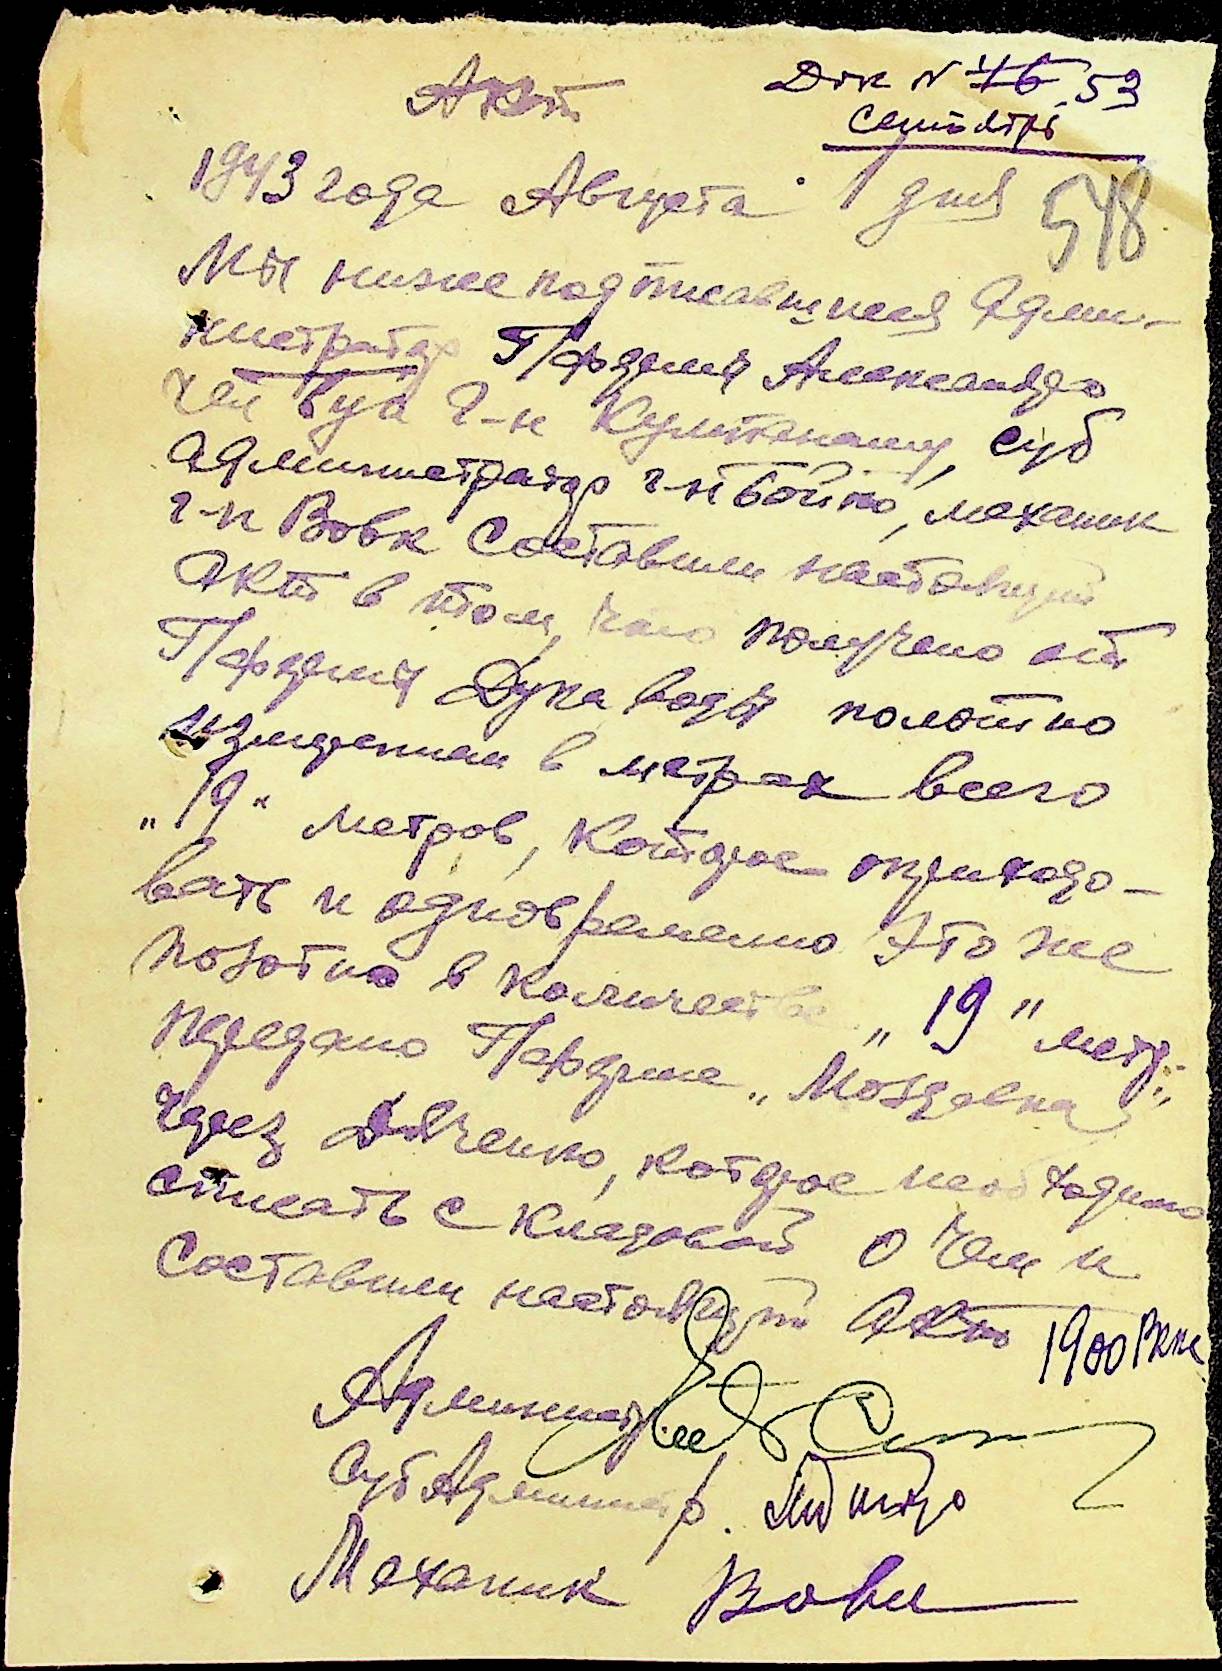 Док N 46 53
Акт
1943 года Августа 1 дня
548
Мы ниже подписавшиеся Адми-
нистратор Александро
г-н суб
Администратор г-н Бойко, механик
г-н Вовк Составили настоящий
Акт в том, что получено от
воды полотно
в метрах всего
„19“ метров, которое оприходо-
вать и одновременно это же
полотно в количестве „19" метр.
передано Ферме
через Дяченко, которое необходимо
списать с кладовой о чем и
Составили настоящий Акт
1900 РКК
Администр.
СубАдминистр.
Механик Вовк